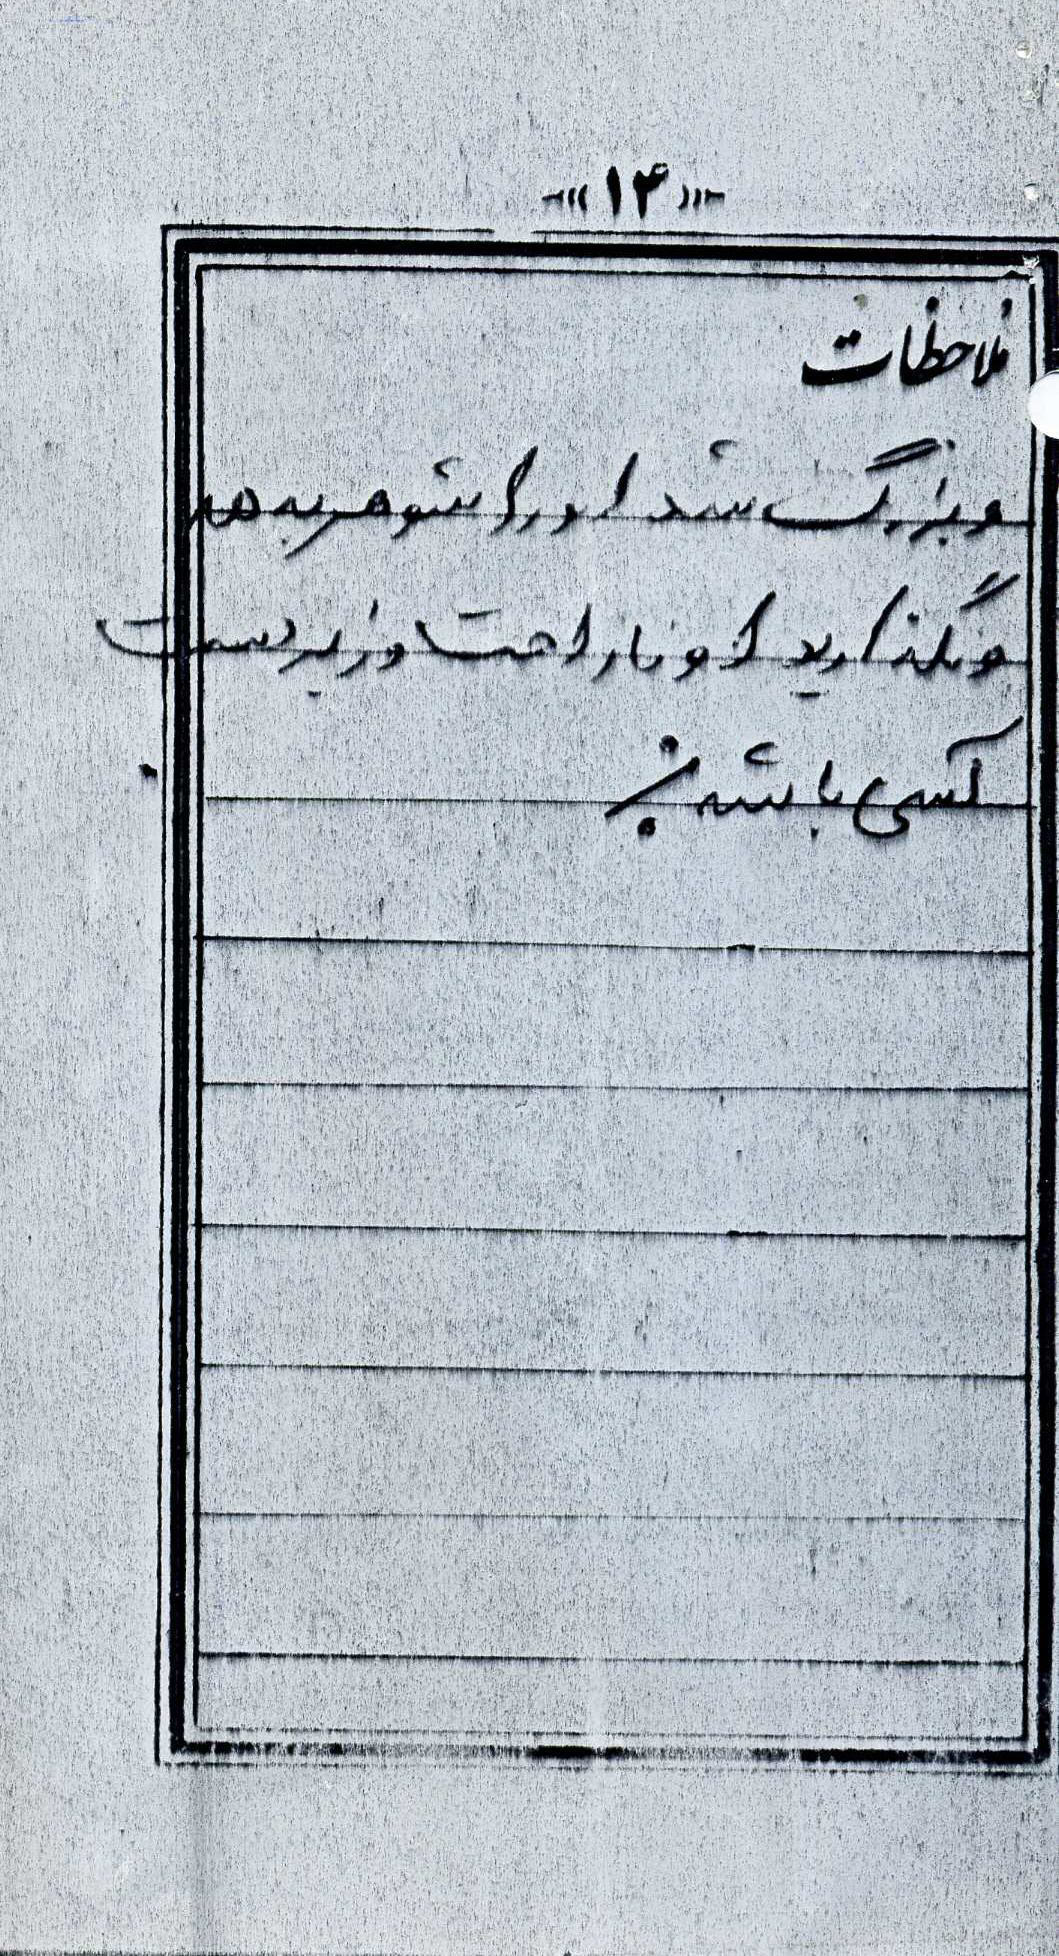 ۱۴
ملاحظات
و بزرگ شد او را شوهر بدهید
و نگذارید او ناراحت و زیر دست
کسی باشد